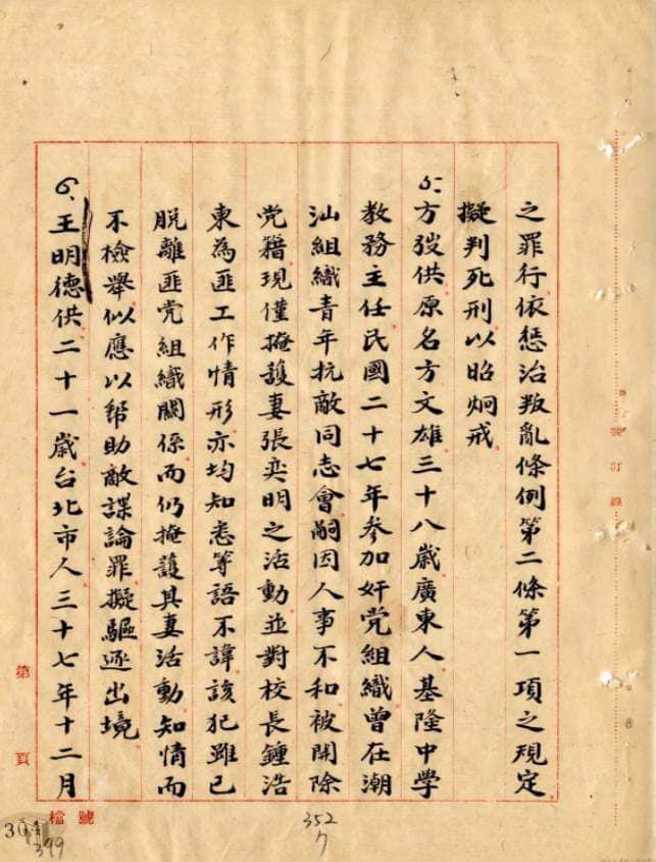 之罪行依懲治叛亂條例第二條第一項之規定
擬判死刑以昭炯戒
5、方弢供原名方文雄三十八歲廣東人基隆中学
教務主任民國二十七年參加奸党組織曾在潮
汕組織青年抗敵同志會嗣因人事不和被開除
党籍現僅掩護妻張奕明之活動並對校長鍾浩
東為匪工作情形亦均知悉等語不諱該犯雖已
脫離匪党組織關係而仍掩護其妻活動知情而
不檢舉似應以幫助敵諜論罪擬驅逐出境
6、王明德供二十一歲台北市人三十七年十二月
裝訂線
第 頁
檔號
352
399